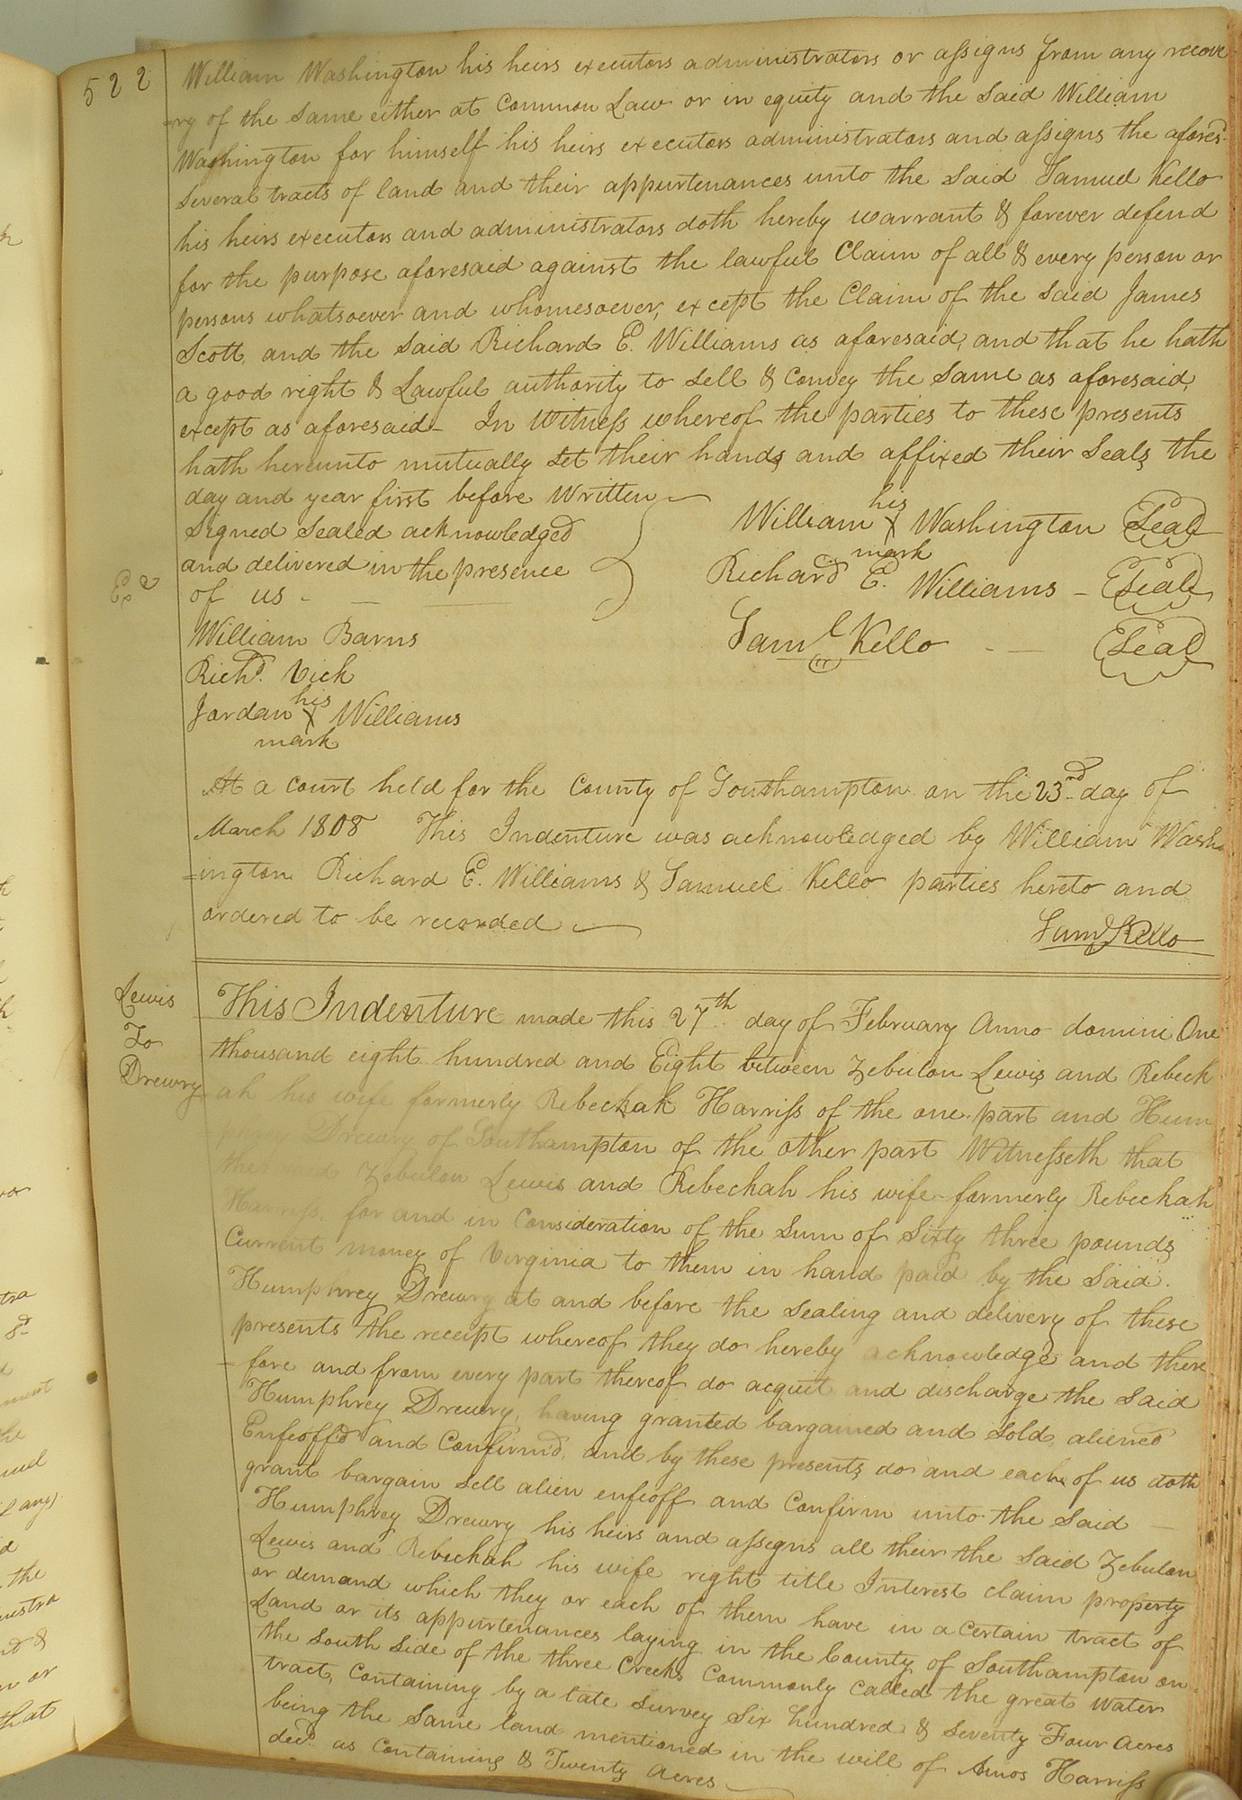 522
William Washington his heirs executors administrators or assigns from any recove
=ry of the same either at Common Law or in equity and the said William
Washington for himself his heirs executors administrators and assigns the afores.d
several tracts of land and their appurtenances unto the said Samuel Kello
his heirs executors and administrators doth hereby warrant & forever defend
for the purpose aforesaid against the lawful Claim of all & every person or
persons whatsoever and whomesoever, except the Claim of the said James
Scott, and the said Richard E. Williams as aforesaid, and that he hath
a good right & Lawful authority to sell & Convey the same as aforesaid,
except as aforesaid - In Witness whereof the parties to these presents
hath hereunto mutually set their hands and affixed their Seals the
day and year first before Written
Signed Sealed acknowledged
and delivered in the presence
of us - -
William Barns
Rich.d Vick
Jordan his X Williams
mark
William his X Washington Seal
mark
Richard E. Williams - Seal
Sam.l Kello - - Seal
Ex.d
At a court held for the County of Southampton on the 23rd day of
March 1808 This Indenture was acknowledged by William Wash
=ington Richard E. Williams & Samuel Kello parties hereto and
ordered to be recorded
Sam.l Kello
Lewis
To
Drewry
This Indenture made this 27th day of February Anno domini One
thousand eight hundred and Eight between Zebulon Lewis and Rebeck
ah his wife formerly Rebeckah Harriss of the one part and Hum
phrey Drewry of Southampton of the other part Witnesseth that
the said Zebulon Lewis and Rebeckah his wife formerly Rebeckah
Harriss, for and in Consideration of the Sum of Sixty three pounds
Current money of Virginia to them in hand paid by the Said
Humphrey Drewry at and before the sealing and delivery of these
presents the receipt whereof they do hereby acknowledge and there
=fore and from every part thereof do acquit and discharge the said
Humphrey Drewry, having granted bargained and sold, aliened
Enfeoff'd and Confirm'd, and by these presents do and each of us doth
grant bargain sell alien enfeoff and Confirm unto the said
Humphrey Drewry his heirs and assigns all their the said Zebulon
Lewis and Rebeckah his wife right title Interest claim property
or demand which they or each of them have in a Certain tract of
Land or its appurtenances laying in the County of Southampton on
the south side of the three Creeks Commonly Called the great Water
tract, Containing by a late survey Six hundred & Seventy Four Acres
being the same land mentioned in the will of Amos Harriss
dec.d as Containing & Twenty Acres